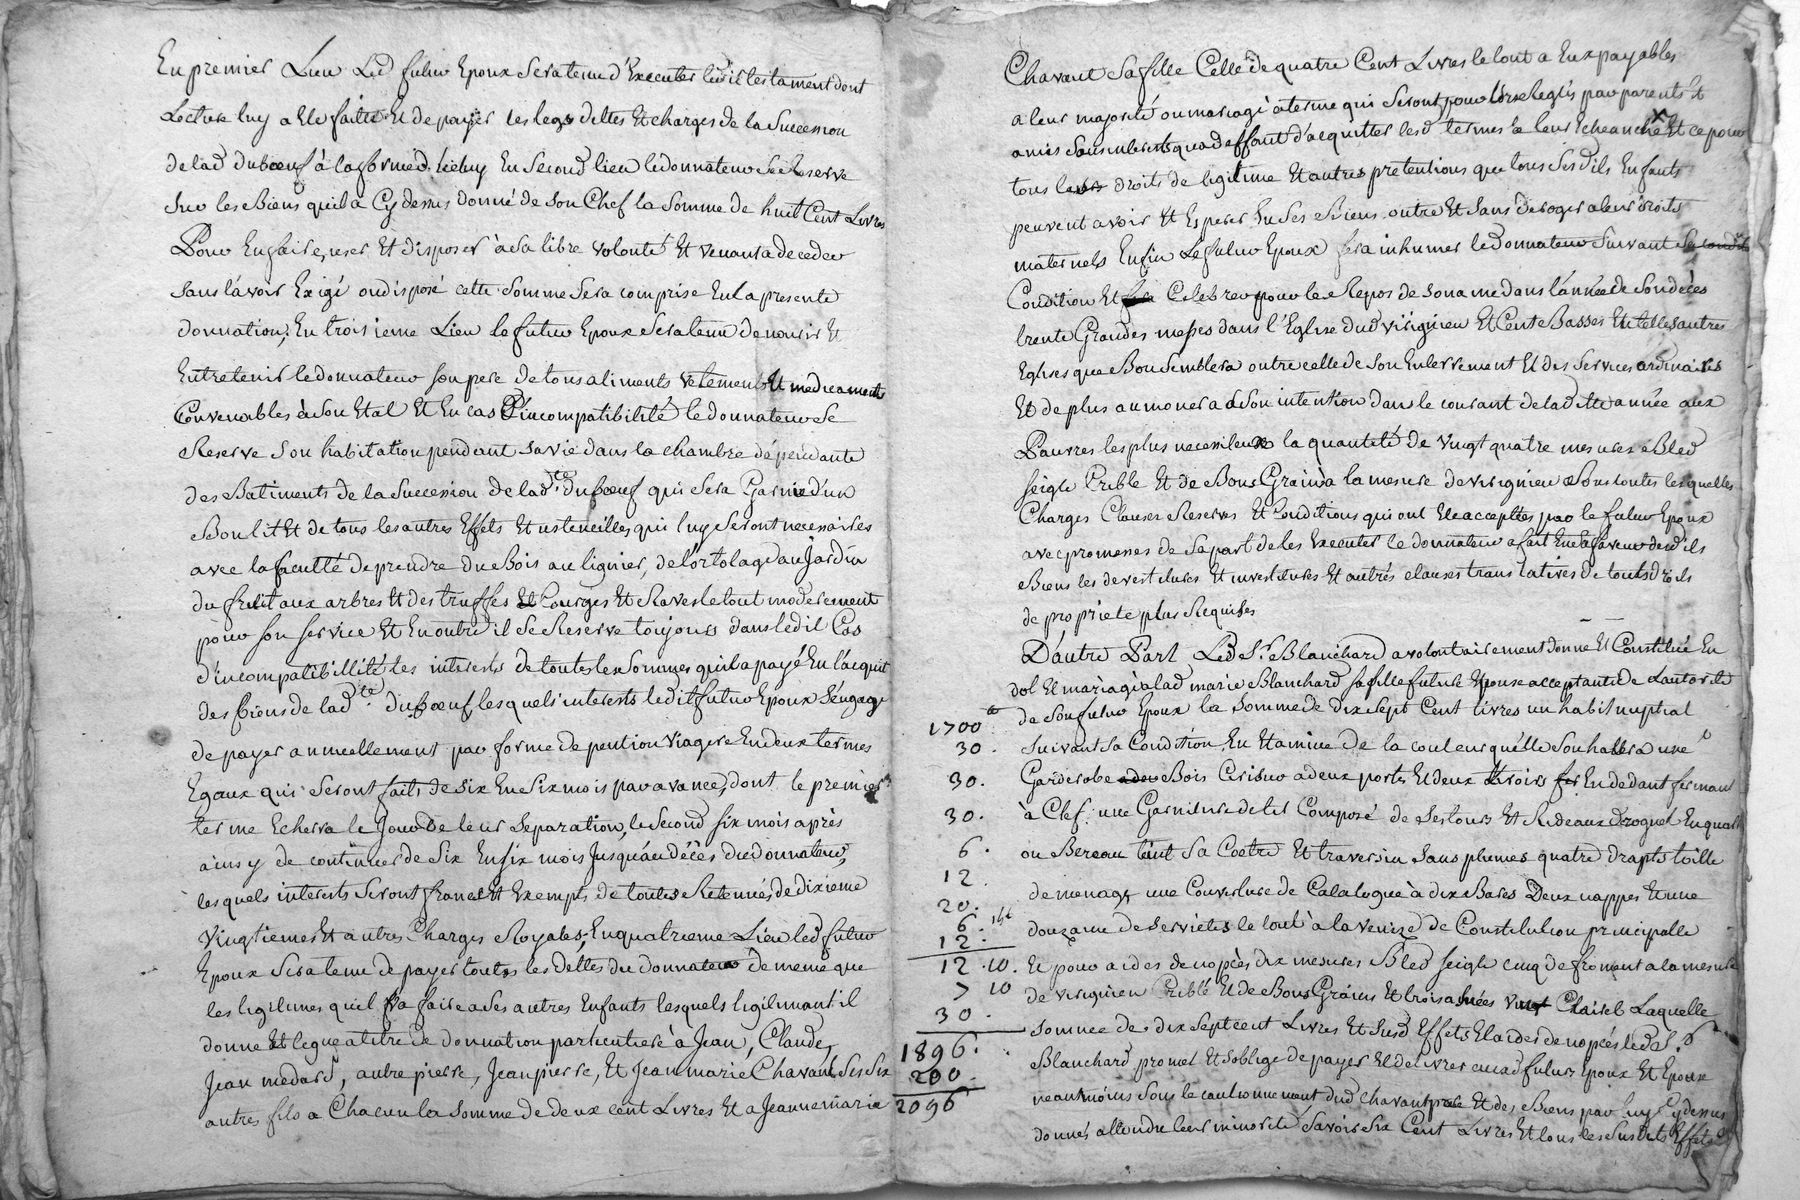 En premier Lieu Led futur Epoux Sera tenu d'Executer ledit testament dont
Lecture luy a été faitte Et de payer les legs dettes Et charges de la Succession
de lad duboeuf à la forme d. iceluy En Second lieu ledonnateur Se Reserve
Sur les Biens qu'il a Cy dessus donné de son Chef la Somme de huit Cent Livres
Pour En faire, user Et disposer à Sa libre volonté Et venant a deceder
Sans l'avoir Exigé ou disposé cette Somme Sera comprise En la presente
donnation, En troisieme Lieu le futur Epoux Sera tenu de nourir Et
Entretenir ledonnateur Son pere de tous aliments vetements Et medicaments
Convenables à Son Etat Et En cas D'incompatibilité le donnateur Se
Reserve Son habitation pendant Sa vie dans la chambre dépendante
des Batiments de la Succession de lad.te duBoeuf qui Sera Garnie d'un
Bon lit Et de tous les autres Effets Et ustencilles qui luy Seront necessaires
avec la faculté de prendre du Bois au lignier, de l'ortolage au Jardin
du fruit aux arbres Et des truffes Et Courges Et Raves le tout moderement
pour Son Service Et En outre il Se Reserve toujours dans ledit Cas
d'incompatibillité les interests de toutes les Sommes qu'il a payé En l'acquit
des Biens de lad.te duBoeuf lesquels interests ledit futur Epoux S'engage
de payer annuellement par forme de pention viagere En deux termes
Egaux qui Seront faits de Six En Six mois par avance, dont le premier
terme Echerra le Jour de leur Separation, le Second Six mois après
ainsy de continuer de Six En Six mois Jusqu'au décès du donnateur,
lesquels interests Seront francs Et Exempts de toutes Retenues de dixieme
Vingtiemes Et autres Charges Royales, En quatrieme Lieu led futur
Epoux Sera tenu de payer toutes les dettes du donnateur de meme que
les legitimes qu'il fera faire a Ses autres Enfants lesquels legitimant il
donne Et legue a titre de donnation particuliere à Jean, Claude,
Jean medard, autre pierre, Jean pierre, Et Jean marie Chavant Ses Six
autres fils a Chacun la Somme de deux cent Livres Et a Jeanne marie
Chavant Sa fille Celle de quatre Cent Livres le tout a Eux payables
a leur majorité ou mariage à terme qui Seront pour lors Reglés par parents Et
amis Sans interests qu'a deffaut d'acquitter lesd termes a leur Echeanche Et ce pour
tous leurs droits de legitime Et autres pretentions que tous Sesdits Enfants
peuvent avoir Et Esperer En Ses Biens outre Et Sans deroger a leur droits
maternels Enfin Le futur Epoux fera inhumer le donnateur Suivant Sa condit
Condition Et fera Celebrer pour le Repos de Son ame dans l'année de Son décès
trente Grandes messes dans l'Eglise dud virignieu Et Cent Basses En telles autres
Eglises que Bon Semblera outre celle de Son Enterrement Et des Services ordinaires
Et de plus aumonera a Son intention dans le courant de laditte année aux
Pauvres les plus necessiteux la quantité de vingt quatre mesures Bled
Seigle Crible Et de Bons Grains à la mesure de virignieu Sous toutes lesquelles
Charges Clauses Reserves Et Conditions qui ont été acceptées par le futur Epoux
avec promesses de Sa part de les Executer le donnateur a fait En Sa faveur desdits
Biens les devestitures Et investitures Et autres clauses translatives de touts droits
de proprieté plus Requises
D'autre Part Led S.r Blanchard a volontairement donné Et Constitué En
dot Et mariage à lad marie Blanchard Sa fille future Epouse acceptante de L'autorité
1700tt de Son futur Epoux la Somme de dix Sept Cent livres un habit nuptial
30. Suivant Sa Condition En Etamine de la couleur qu'elle Souhaittera une
30. Garderobe Bois Cerisier a deux portes Et deux tiroirs En dedant fermant
30. à Clef, une Garniture de lit Composé de Ses tours Et Rideaux Drognet En quart
6. ou Bereau teint Sa Coetre Et traversin Sans plumes quatre draps toille
12. de menage une Couverture de Catalogne à dix Bares Deux nappes Et une
20.
6. douzaine de Serviettes le tout à la venise de Constitution principalle
12.
12.10. Et pour aides de nopces dix mesures Bled Seigle cinq de froment a la mesure
7 10 de virignieu Crible Et de Bons Grains Et trois anées vin Clairet Laquelle
30. Somme de dix Sept cent Livres Et Susd Effets Et aides de nopces led S.r
1896. Blanchard promet Et Soblige de payer Et delivrer auxd futurs Epoux Et Epouse
200. neantmoins Sous le cautionnement dud Chavant pere Et des Biens par luy Cydessus
2096 donnés attendu leur minorité Savoir Six Cent Livres Et tous les Susdits Effets